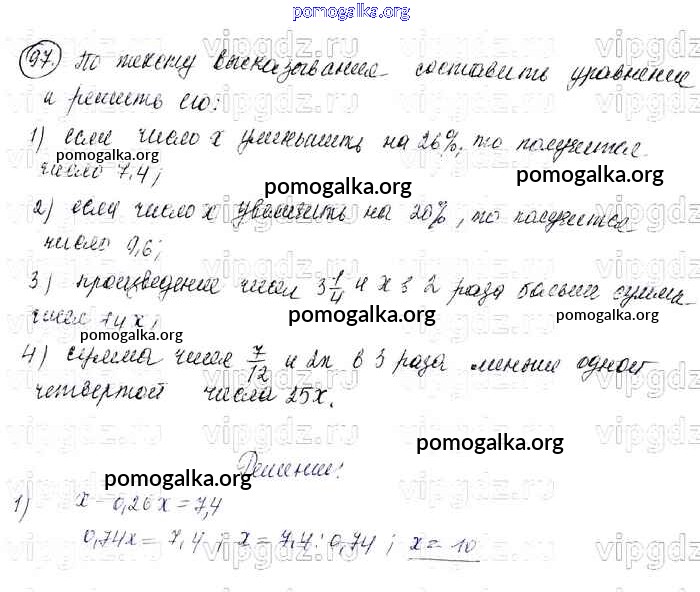 pomogalka.org
97. По тексту высказывания составить уравнение
и решить его:
1) если число x уменьшить на 26%, то получится
pomogalka.org pomogalka.org
число 7,4;
pomogalka.org
2) если число x увеличить на 20%, то получится
число 9,6;
3) произведение чисел 3 1/4 и x в 2 раза больше суммы
чисел и x;
pomogalka.org pomogalka.org pomogalka.org
4) сумма чисел 7/12 и 2x в 3 раза меньше одной
четвертой числа 25x.
pomogalka.org
Решение:
pomogalka.org
1) x - 0,26x = 7,4
0,74x = 7,4; x = 7,4 : 0,74; x = 10
pomogalka.org